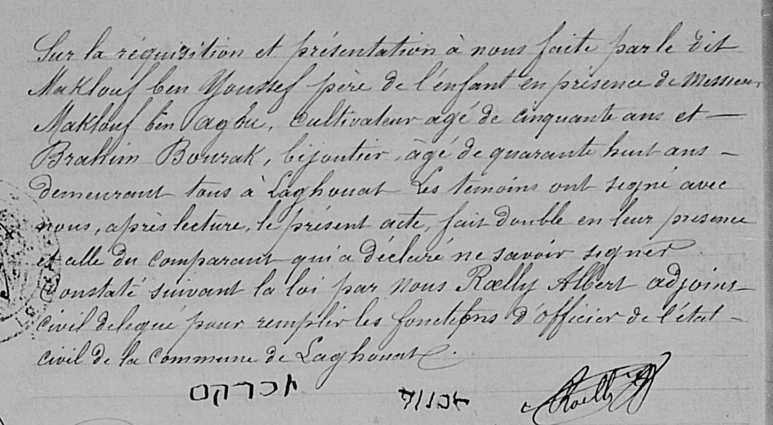 Sur la réquisition et présentation à nous faite par le dit
Maklouf ben Youssef père de l'enfant en présence de Messieurs
Maklouf ben agou, cultivateur agé de cinquante ans et —
Brahim Bourak, bijoutier, agé de quarante huit ans —
demeurant tous à Laghouat Les témoins ont signé avec
nous, après lecture, le présent acte, fait double en leur presence
et celle du comparant qui a déclaré ne savoir signer.
Constaté suivant la loi par nous Rœlly Albert adjoint
civil delegué pour remplir les fonctions d'officier de l'état —
civil de la commune de Laghouat.
Rœlly